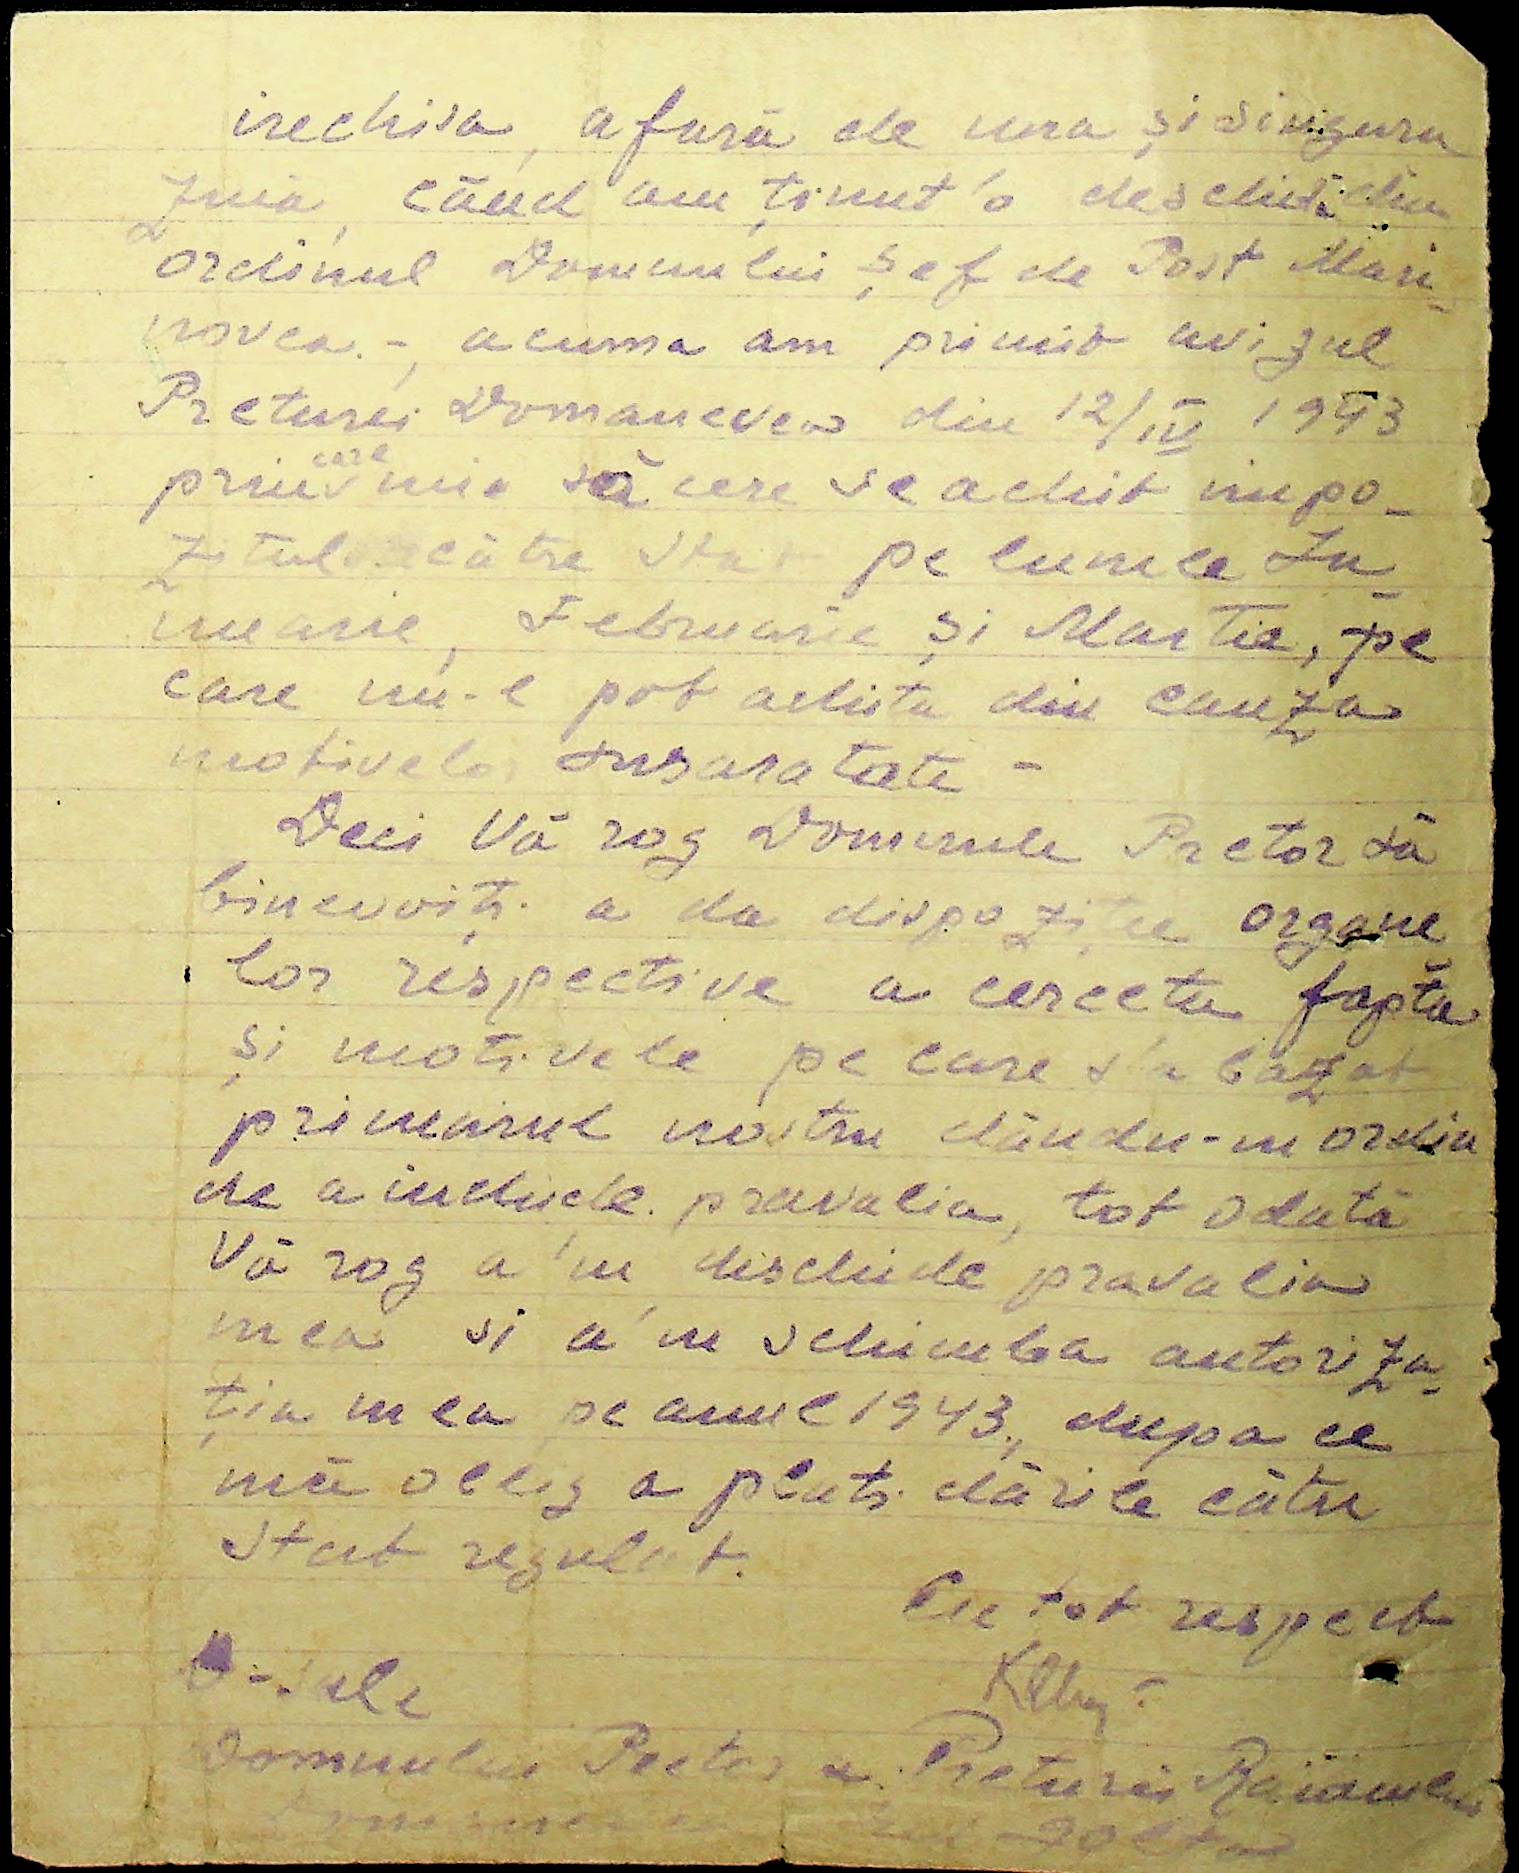 inchisa, afară de una și singura
zuia, când am ținut'o deschisă din
ordinul Domnului Șef de Post Mari-
novca.-, acuma am primit avizul
Preturei Domanevca din 12/IV 1943
prin care mie să cere se achit impo-
zitul către Stat pe lunele Ia-
nuarie, Februarie și Martie, pe
care nu-l pot achita din cauza
motivelor susaratate -
Deci Vă rog Domnule Pretor să
binevoiți a da dispoziție organe
lor respective a cerceta fapta
și motivele pe care s'a bazat
primarul nostru dându-m ordin
de a inchide pravalia, tot odată
Vă rog a'm deschide pravalia
mea si a'm schimba autoriza-
ția mea pe anul 1943., dupa ce
mă oblig a plati dările către
Stat regulat.
Cu tot respect
D-sale
Domnului Pretor a Preturei Raionului
Golta